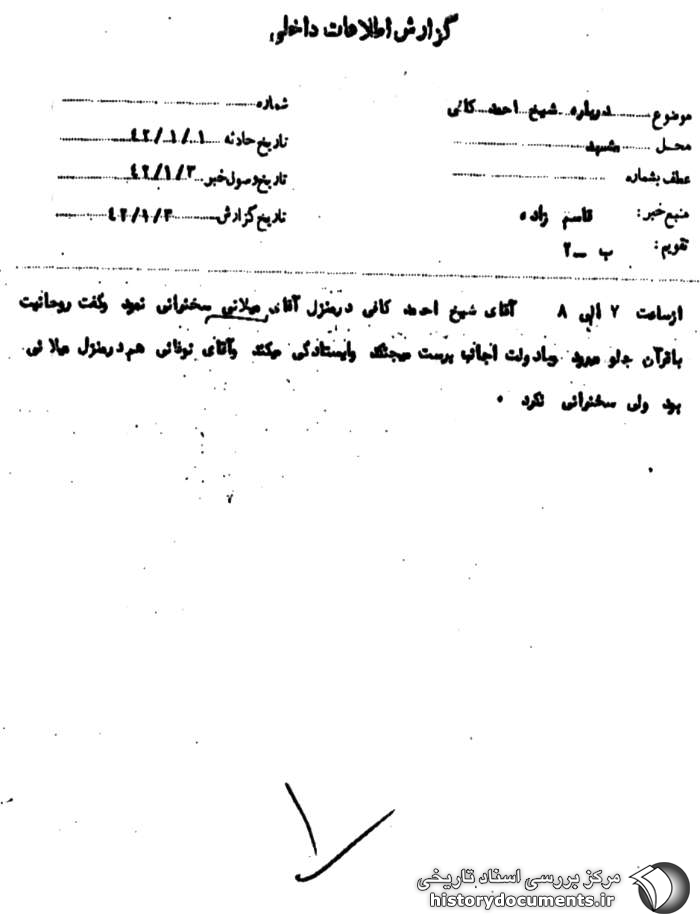 گزارش اطلاعات داخلی
موضوع درباره شیخ احمد کافی
شماره
محل مشهد
تاریخ حادثه ۴۲/۱/۱
عطف بشماره
تاریخ وصول خبر ۴۲/۱/۳
منبع خبر: قاسم زاده
تاریخ گزارش ۴۲/۱/۳
تقویم: ب ـ ۲
از ساعت ۷ الی ۸ آقای شیخ احمد کافی در منزل آقای میلانی سخنرانی نمود وگفت روحانیت
با قرآن جلو میرود وبا دولت اجانب پرست میجنگد وایستادگی میکند وآقای نوغانی هم در منزل میلانی
بود ولی سخنرانی نکرد .
مرکز بررسی اسناد تاریخی
historydocuments.ir